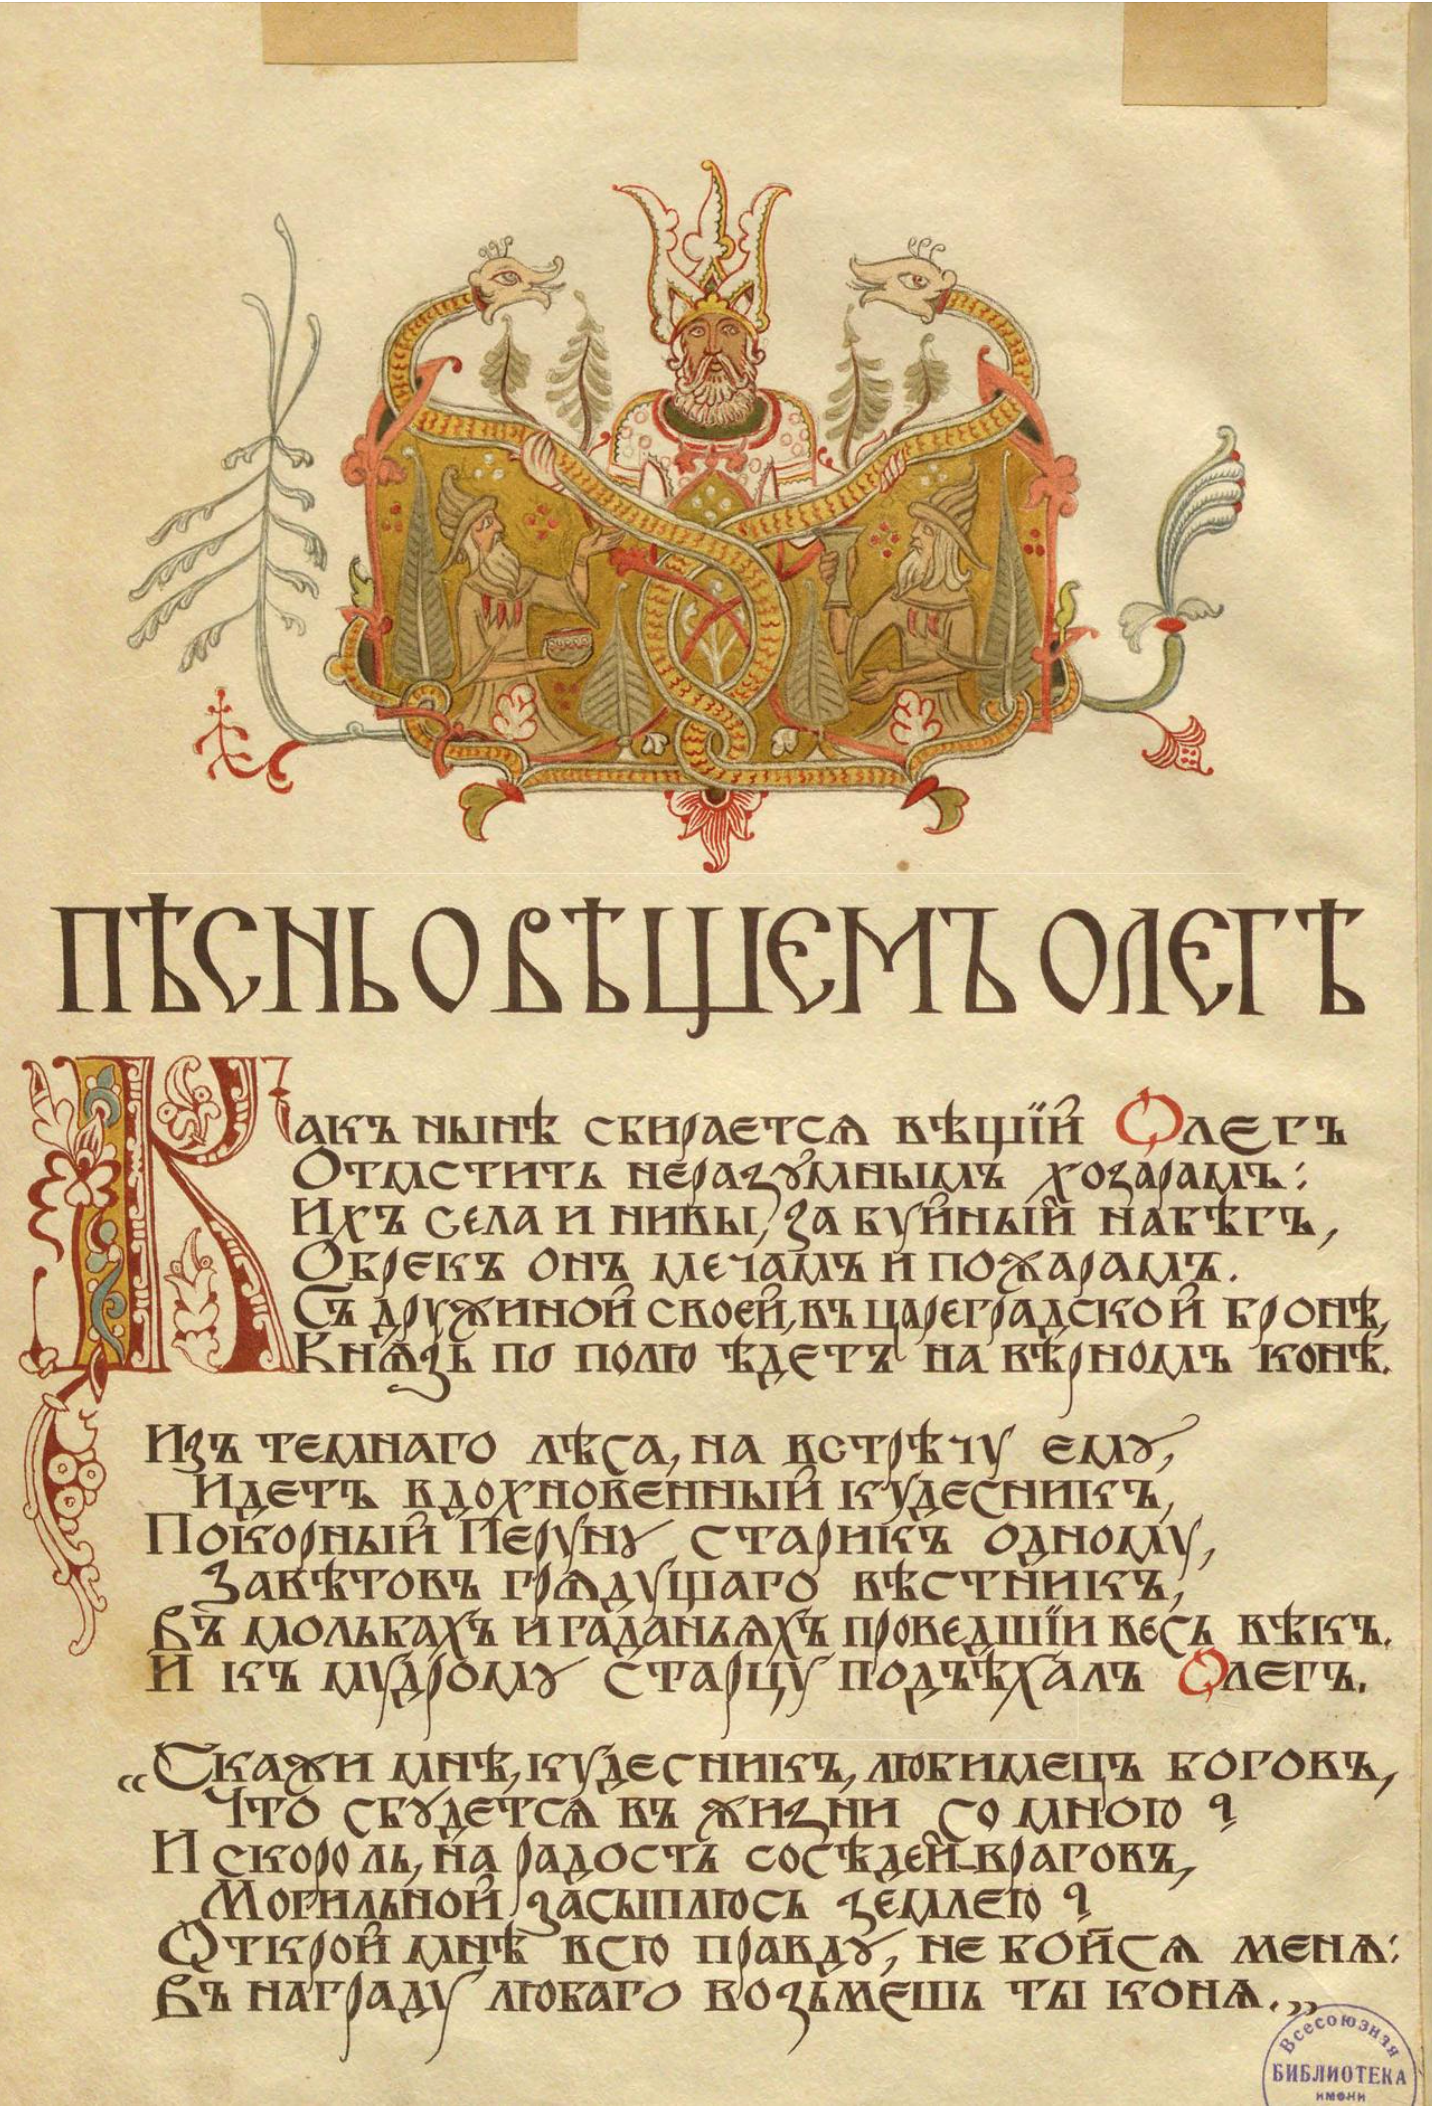 ПѢСНЬ О ВѢЩЕМЪ ОЛЕГѢ
Какъ нынѣ сбирается вѣщїй Олегъ
Отмстить неразумнымъ хозарамъ:
Ихъ села и нивы, за буйный набѣгъ,
Обрекъ онъ мечамъ и пожарамъ.
Съ дружиной своей, въ цареградской бронѣ,
Князь по полю ѣдетъ на вѣрномъ конѣ.
Изъ темнаго лѣса, на встрѣчу ему,
Идетъ вдохновенный кудесникъ,
Покорный Перуну старикъ одному,
Завѣтовъ грядущаго вѣстникъ,
Въ мольбахъ и гаданьяхъ проведшїи весь вѣкъ.
И къ мудрому старцу подъѣхалъ Олегъ.
„Скажи мнѣ, кудесникъ, любимецъ боговъ,
Что сбудется въ жизни со мною?
И скороль, на радость сосѣдей-враговъ,
Могильной засыплюсь землею?
Открой мнѣ всю правду, не бойся меня:
Въ награду любаго возьмешь ты коня.„
Всесоюзная
БИБЛИОТЕКА
имени